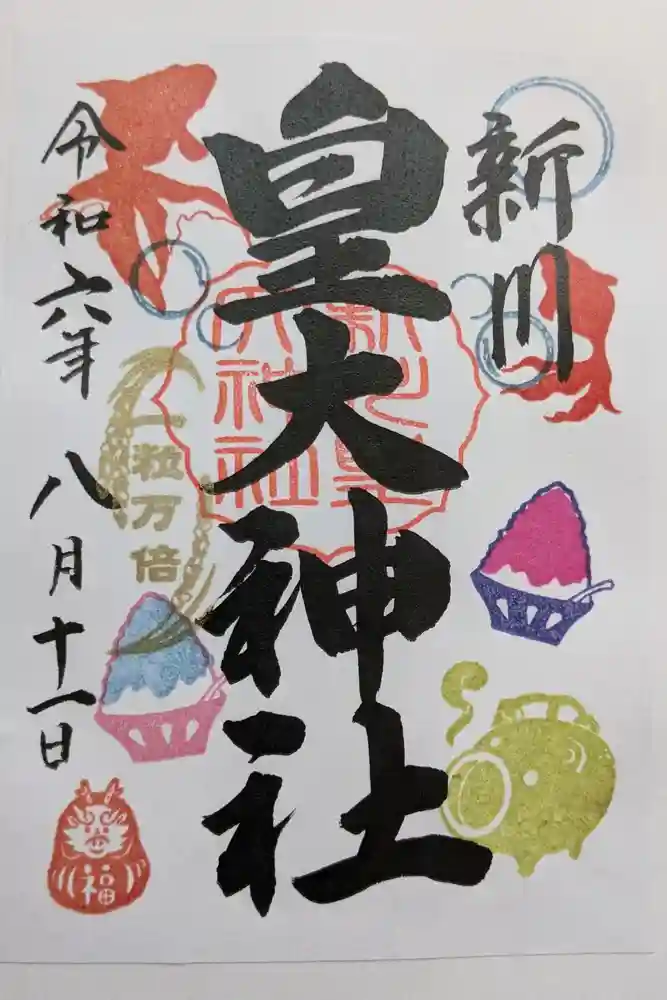 新川
皇大神社
新川皇
大神社
一粒万倍
令和六年 八月十一日
福